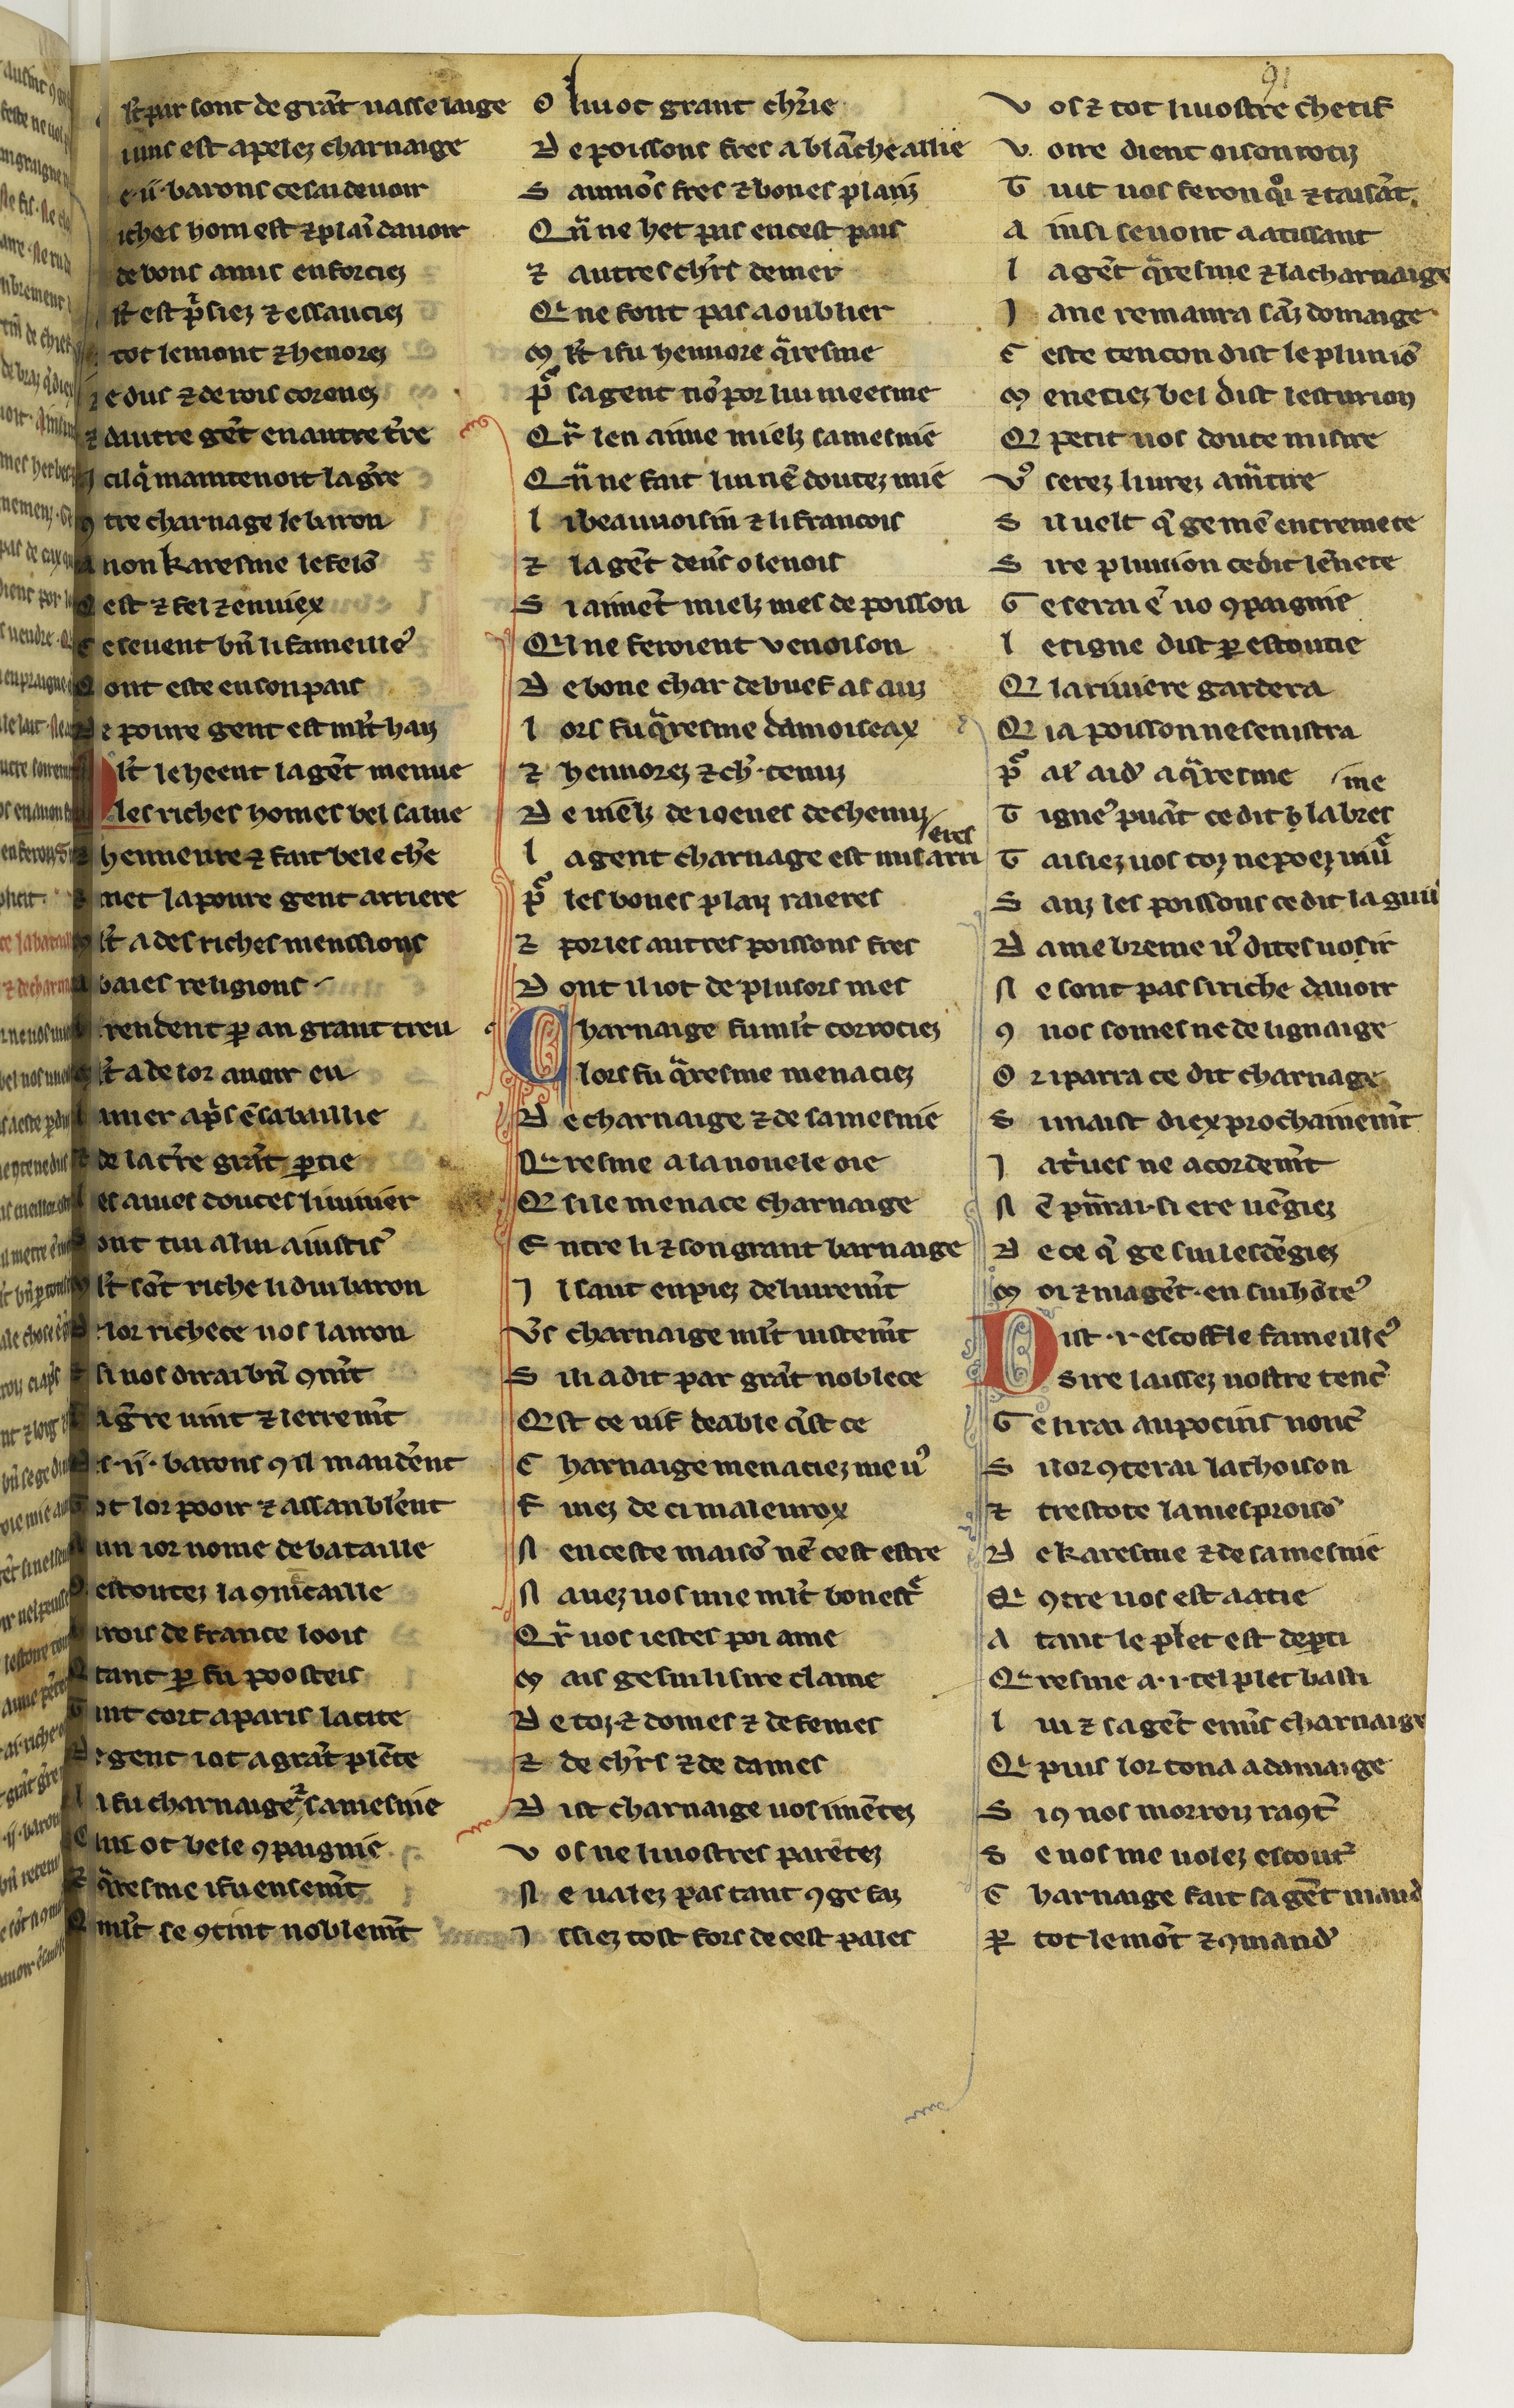 lt par sont de grãt uasselaige
iuns est apelez charnaige
e .ii. barons ce sai de uoir
iches hom est ⁊ plaĩ dauoir
de bons amis enforciez
lt est p̾siez ⁊ essauciez
tot le mont ⁊ henorez
e dus ⁊ de rois coronez
⁊ dautre gẽt en autre t̾re
cil q̾ maintenoit la g̾re
ꝯtre charnage le baron
non karesme le felõ
est ⁊ fel ⁊ enuiex
e seuent bñ li fameille᷒
ont este en son pais
e poure gent est ml̃t haiz
lt le heent la gẽt menue
les riches homes bel salue
henneure ⁊ fait bele ch̾e
met la poure gent arriere
lt a des riches menssions
baies religions
rendent ꝑ an grant treu
lt a de lor auoir eu
iuier ap̾s ẽ sa baillie
de la t̾re grãt ꝑtie
es aues douces li iuier
ont tui a lui aiustis᷒
lt sõt riche li dui baron
e lor richece uos lairon
si uos dirai bñ ꝯmt̃
la g̾re uint ⁊ lerremt̃
es .ii. barons ꝯ il mandẽnt
ot lor pooir ⁊ assanblẽnt
un ior nome de bataille
escoutez la ꝯmẽcaille
irois de france loois
tant ꝑ fu poosteis
int cort a paris la cite
e gent i ot a grãt plẽte
i fu charnaige ⁊ sa mesnie
ml̃t ot bele ꝯpaignie
q̾resme i fu ensemt̃
ml̃t se ꝯtint noblemt̃
O li uoc grant ch̾rie
D e poissons fres a blãche aillie
S aumõs fres ⁊ bones plaiz̃
Q ñ ne het pas en cest pais
⁊ autres ch̾rs de mer
Q ne font pas a oublier
M lt̃ i fu hennore q̾resme
P᷒ sa gent nõ por lui meesme
Q r̃ len aime mielz sa mesnie
Q ñ ne fait lui nẽ doutez mie
L i beauuoisin ⁊ li francois
⁊ la gẽt deũs olenois
S i aimẽt mielz mes de poisson
Q il ne feroient venoison
D e bone char de buef as auz
L ors fu q̾resme damoiseax
⁊ hennorez ⁊ ch̾. tenuz
D e mẽlz de ioenes de chenuz
L a gent charnage est mis arri eres
P᷒ les bones plaiz raieres
⁊ por les autres poissons fres
D ont il i ot de plusors mes
C harnaige fu ml̃t corrociez
Lors fu q̾resme menaciez
D e charnaige ⁊ de sa mesnie
Q resme a la nouele oie
Q si le menace charnaige
E ntre li ⁊ son grant barnaige
I l saut en piez deliuremt̃
V̾s charnaige ml̃t uistemt̃
S ili a dit par grãt noblece
Q est ce uif deable q̃st ce
C harnaige menaciez me u᷒
F uiez de ci maleurox
N en ceste maisõ nẽ cest estre
N auez uos mie ml̃t bon est᷒
Q r̃ uos iestes poi ame
M ais ge sui li sire clame
D e toz ⁊ domes ⁊ de femes
⁊ de ch̾rs ⁊ de dames
D ist charnaige uos i mẽtez
V os ne li uostres parẽtez
N e ualez pas tant ꝯ ge faz
I ssiez tost fors de cest pales
V os ⁊ tot li uostre chetif
V. oire dient oison rotiz
T uit uos feron q̊i ⁊ taisãt
A insi se uont aatissant
L a gẽt q̾resme ⁊ la charnaige
J a ne remaura sãz domaige
C este tencon dist le pluuiõ
M enetiez bel dist lesturion
Q petit uos doute misire
V᷒ serez liurez a mr̃tire
S il uelt q̃ ge mẽ entremete
S ire pluuion ce dit lẽnete
G e serai ẽ uo ꝯpaignie
L e cigne dist ꝑ estoutie
Q la riuiere gardera
Q ia poisson ne sen istra
P᷒ al᷒ aid᷒ a q̾resme
T igne᷒ puãt ce dit la bres me
T aisiez uos toz ne poez mũ
S anz les poissons ce dit la guiũ
D ame breme u᷒ dites uoir
N e sont pas si riche dauoir
ꝯ nos somes ne de lignaige
O r i parra ce dit charnage
S i mait diex prochainemt̃
J a tr̾ues ne acordemt̃
N ẽ pr̃nrai si ere uẽgiez
D e ce q̃ ge sui lesdẽgiez
M oi ⁊ ma gẽt en sui hõte᷒
D ist .i. escoffle fameille᷒
Sire laissez uostre tenc᷒
G e i irai au pocins nonc᷒
S i lor ꝯterai lachoison
⁊ trestote la mesproisõ
D e karesme ⁊ de sa mesnie
Q ꝯtre uos est aatie
A tant le plet est deꝑti
Q resme a .i. tel plet basti
L ui ⁊ sa gẽt enũs charnaige
Q puis lor torna a damaige
S i ꝯ nos morroiz raꝯt᷒
S e uos me uolez escout᷒
C harnaige fait sa gẽt mand᷒
P᷒ tot le mõt ⁊ ꝯmand᷒